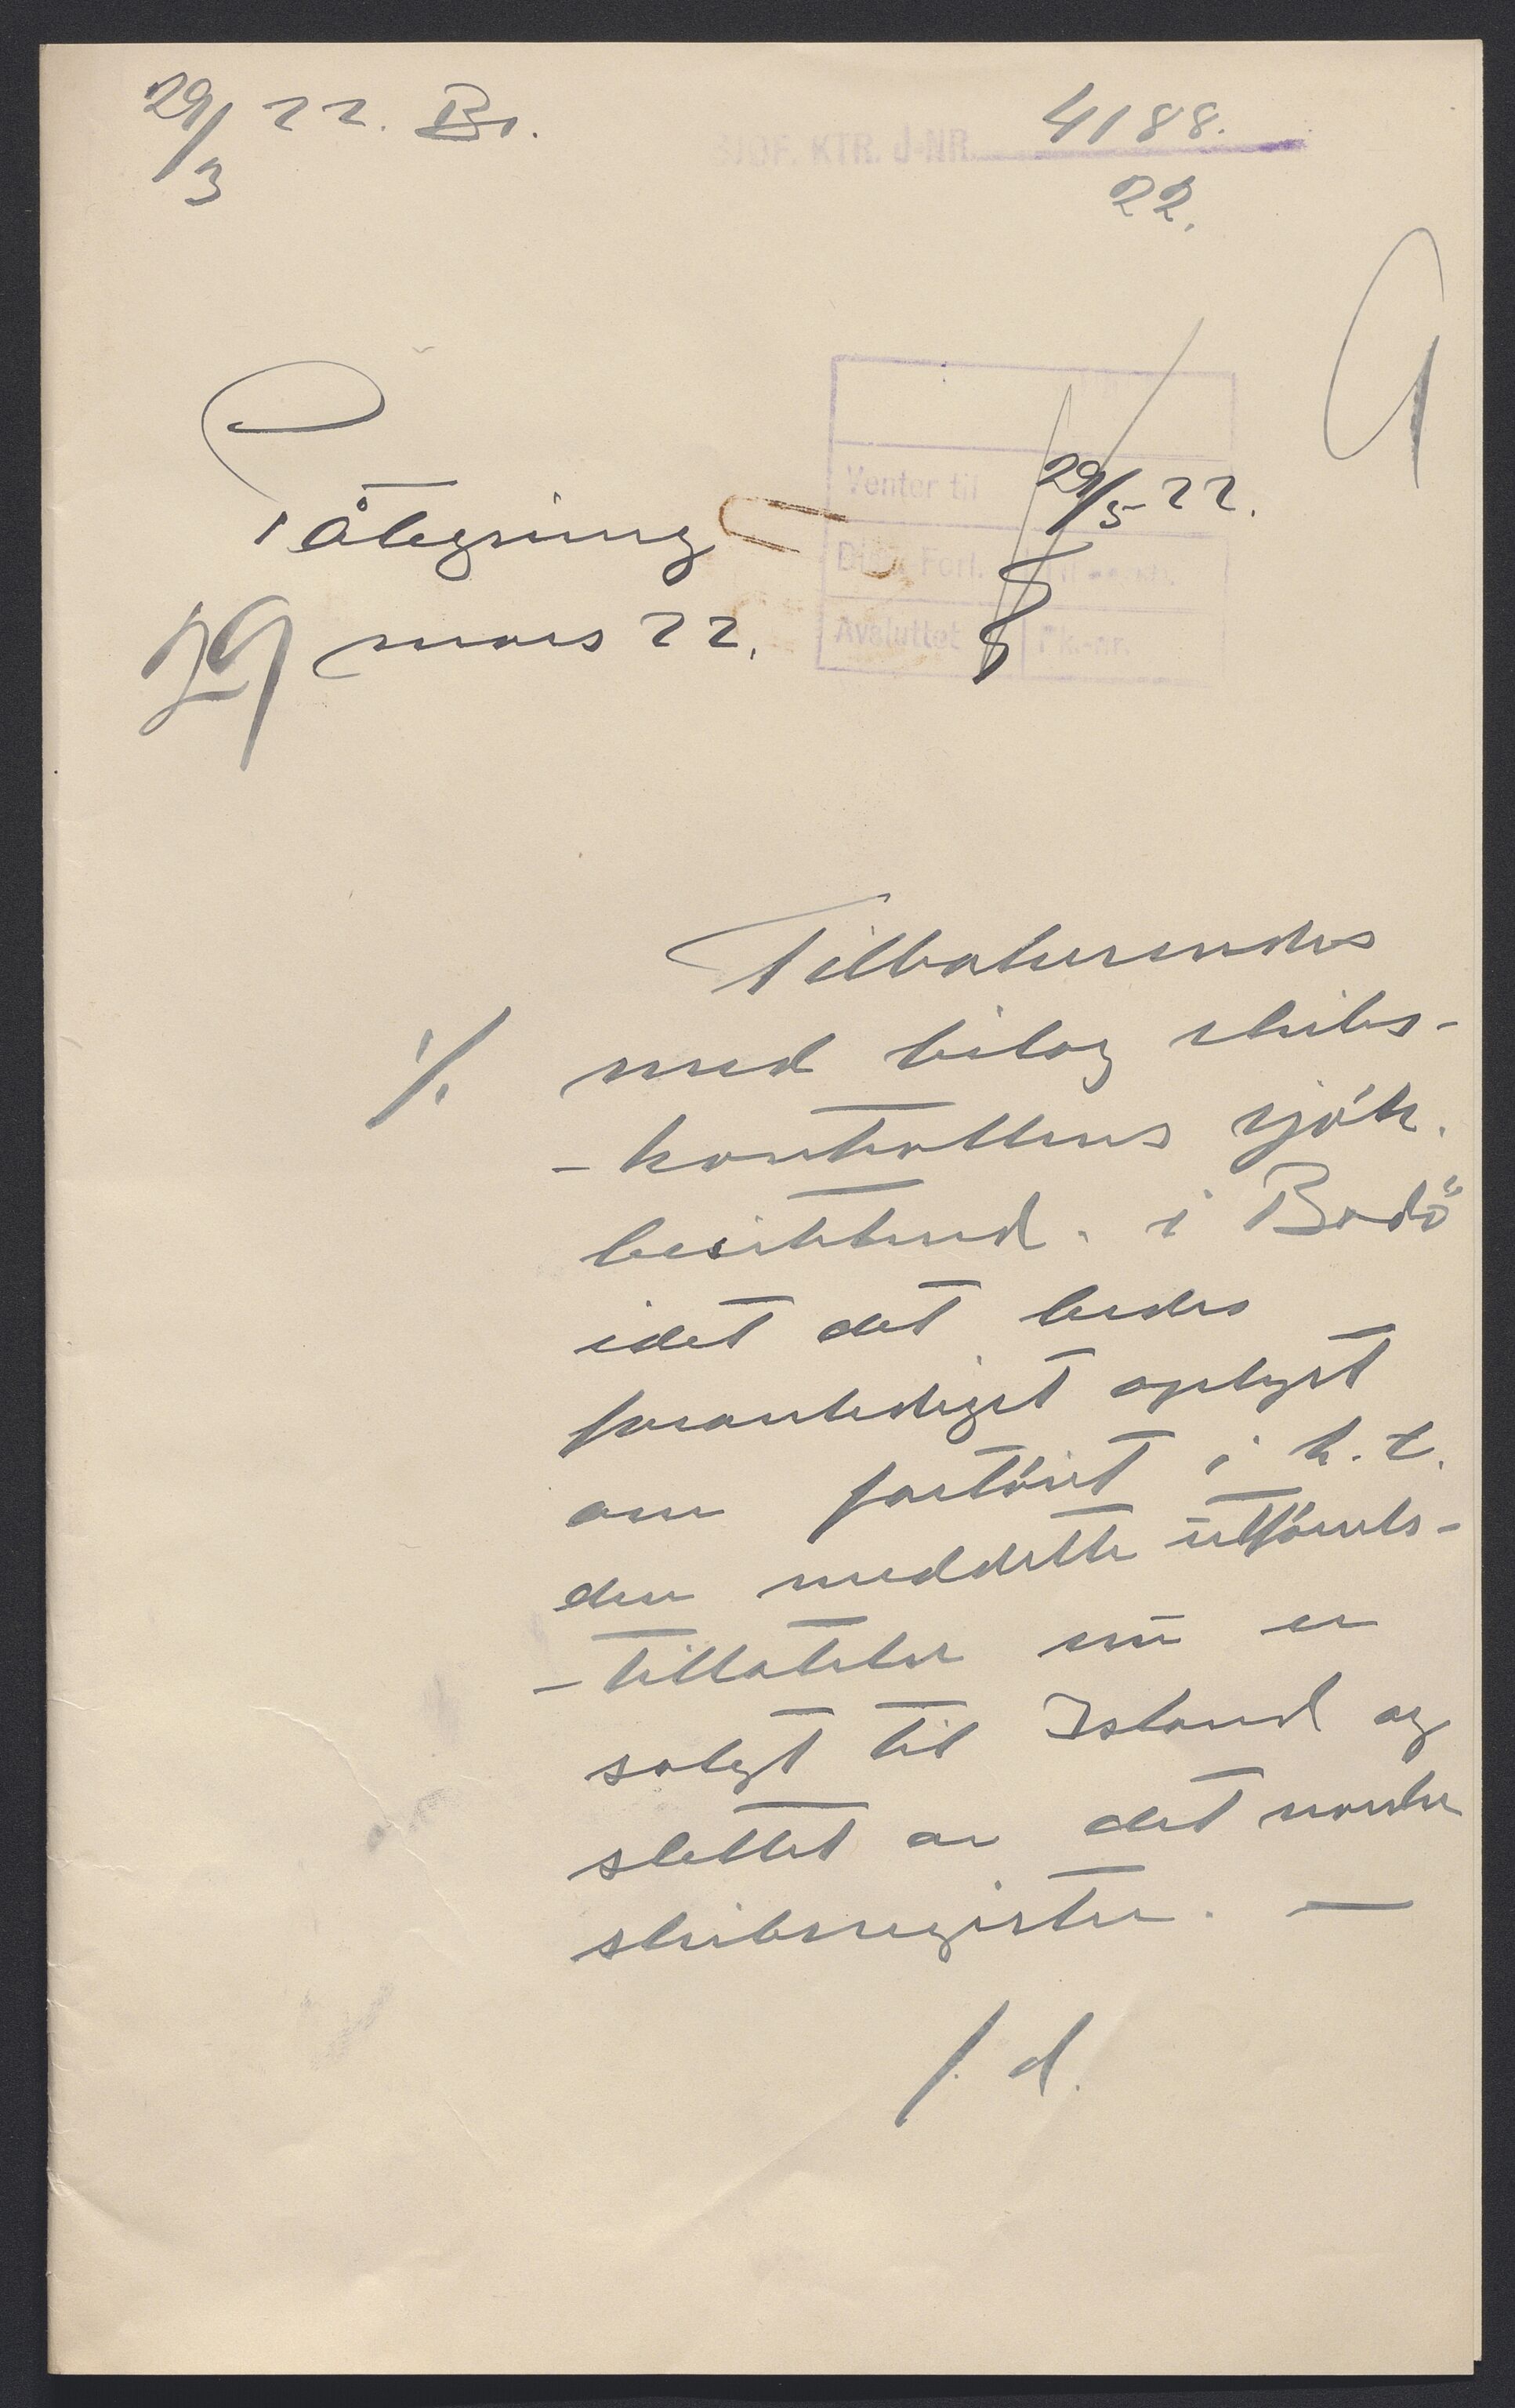 29/3 22. Br.
SJØF. KTR. J-NR. 4188.
22.
Påtegning
29 mars 22.
Venter til 29/5 22.
Avsluttet
Pk.-nr.
Tilbakesendes
1/. med bilag skibs-
-kontrollens sjök.
besiktend. i Bodö
idet det bedes
foranlediget oplyst
om fartöiet i h.t.
den meddelte utförsels-
-tillatelse nu er
solgt til Island og
slettet av det norske
skibsregister. —
f. d.